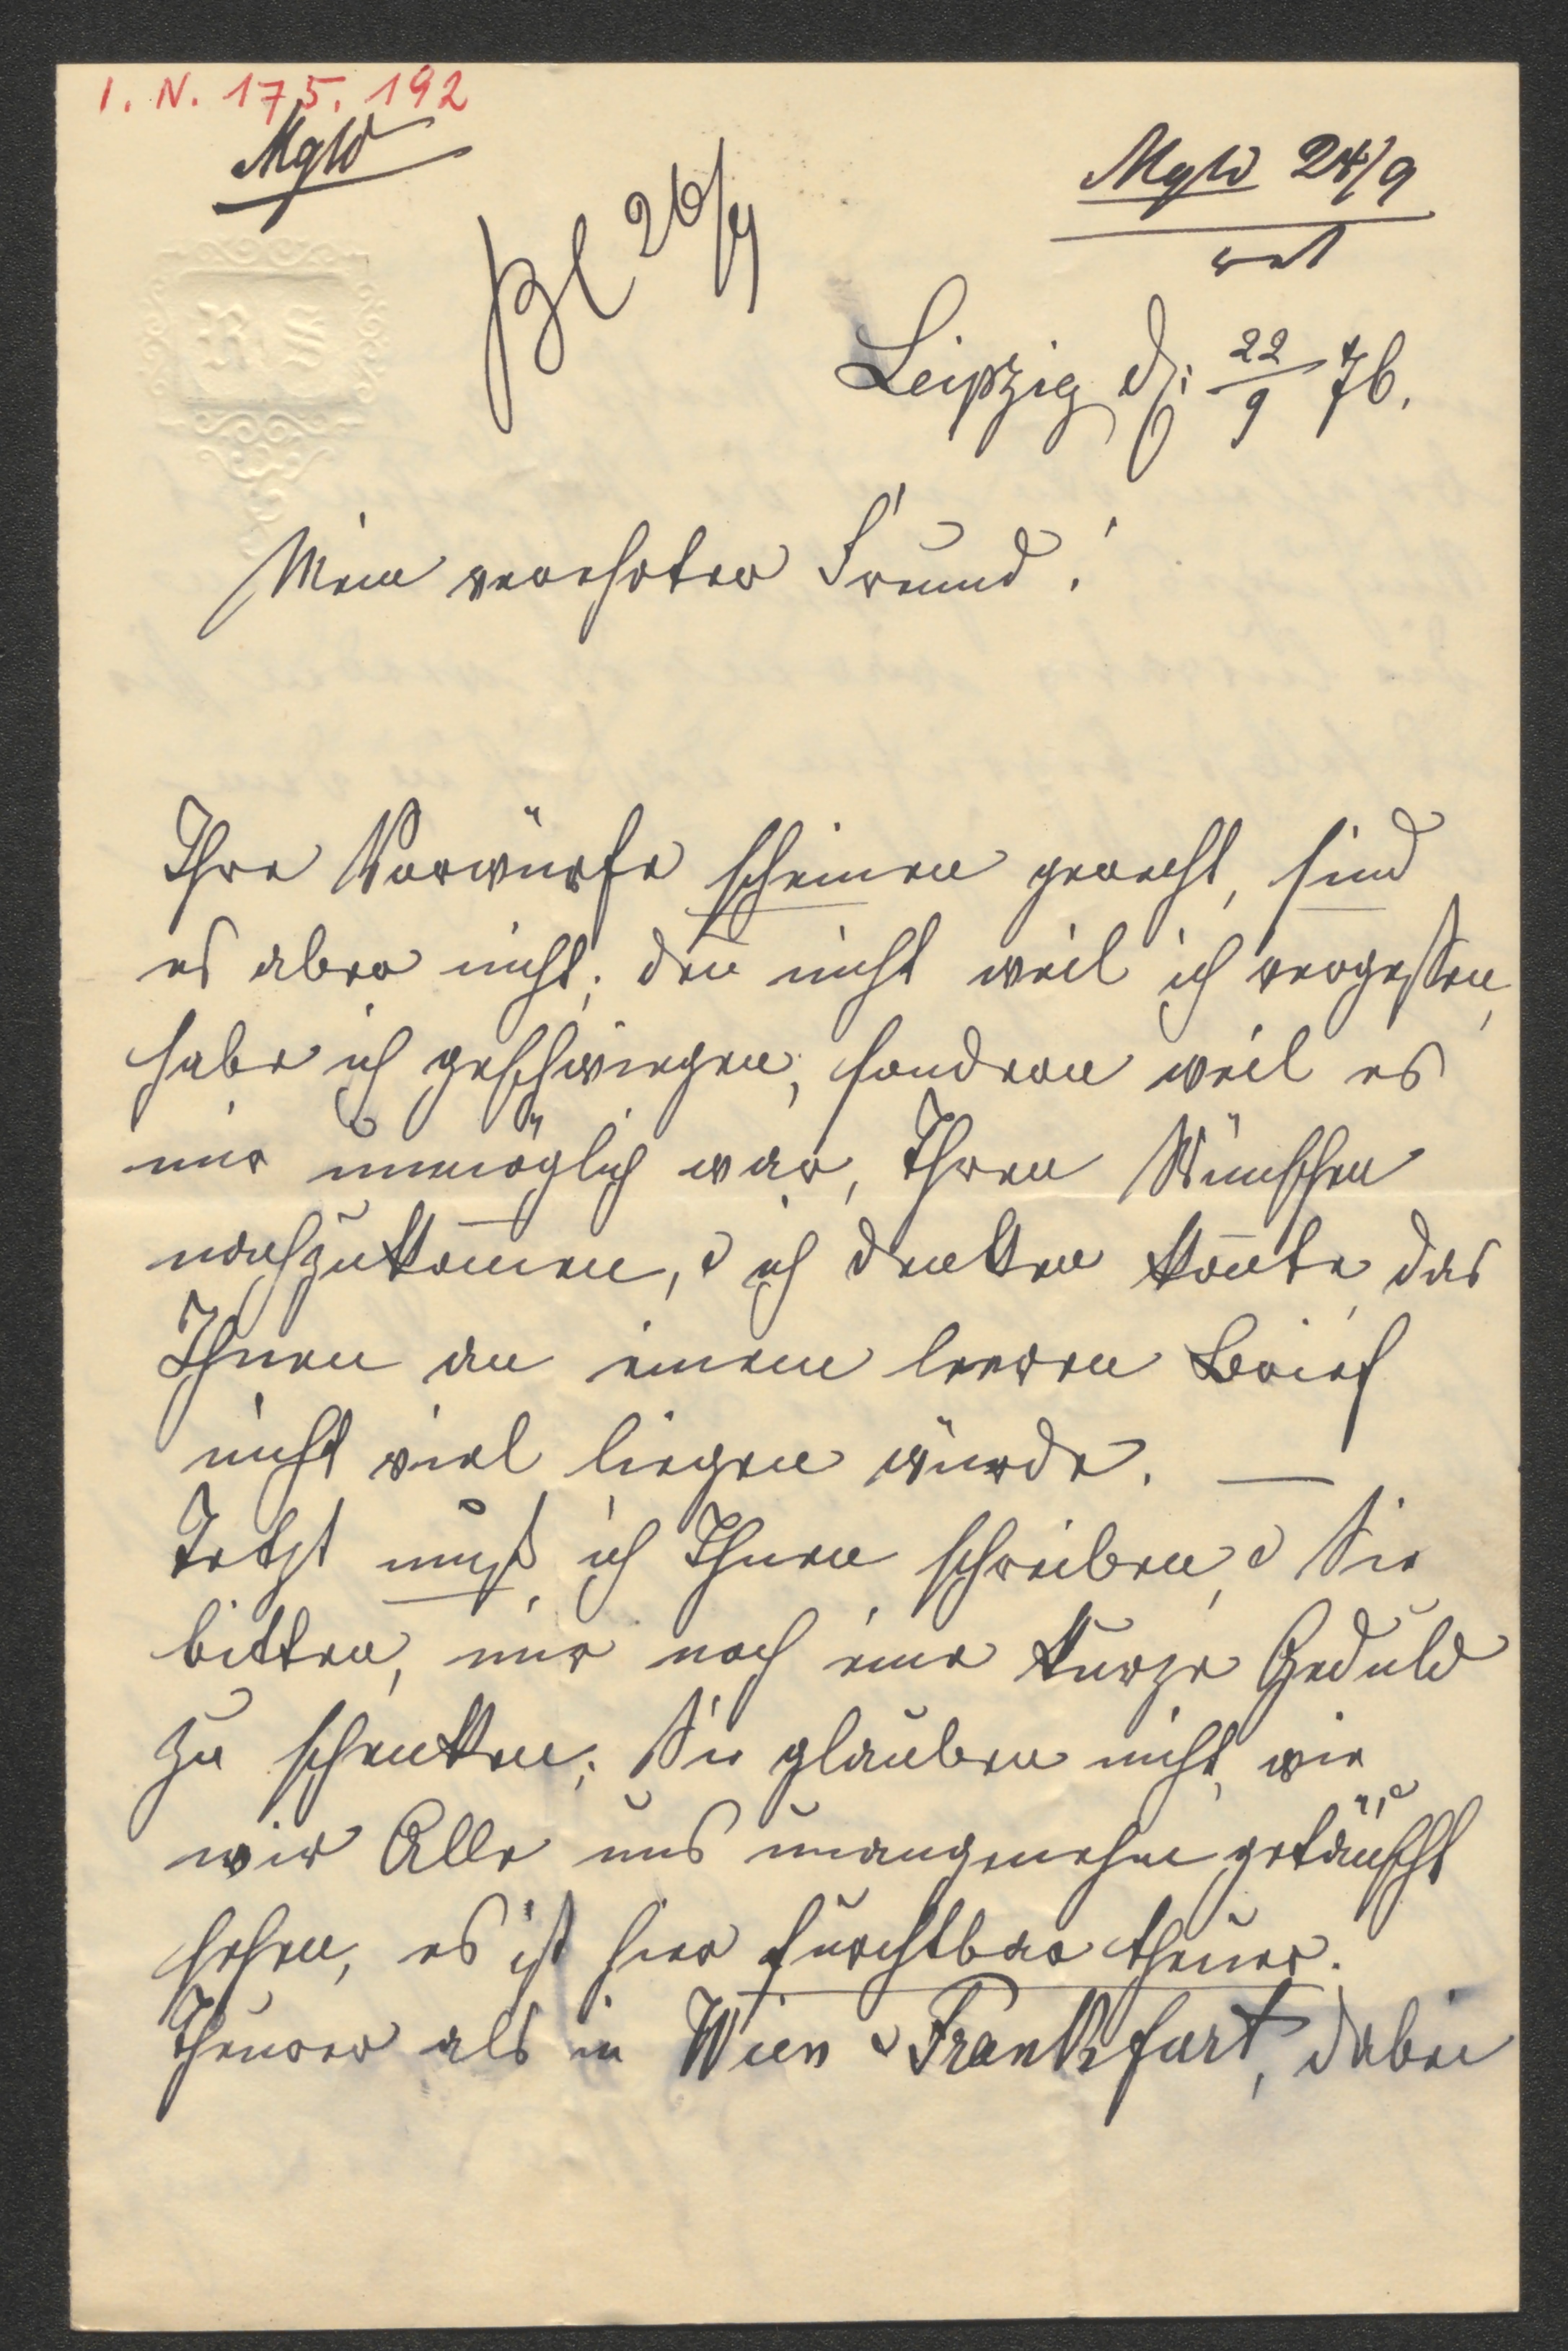 I. N. 175.192
Mgld
Bl 26/9
Mgld 24/9
R S
Leipzig d. 22/9 76.
Mein verehrter Freund!
Ihre Vorwürfe scheinen gerecht, sind
es aber nicht; den̄ nicht weil ich vergessen,
habe ich geschwiegen, sondern weil es
mir unmöglich war, Ihren Wünschen
nachzukom̄en, & ich denken kon̄te, das
Ihnen an einem leeren Brief
nicht viel liegen würde. —
Jetzt muß ich Ihnen schreiben, & Sie
bitten, mir noch eine kurze Geduld
zu schenken; Sie glauben nicht, wie
wir Alle uns unangenehm getäuscht
sehen, es ist hier furchtbar theuer.
Theurer als in Wien & Frankfurt, dabei